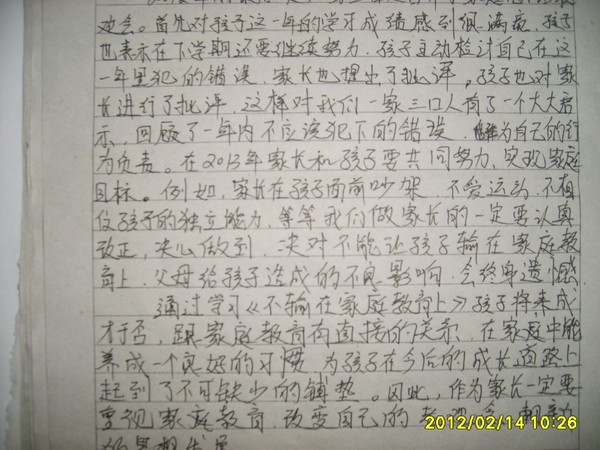 动会。首先对孩子这一年的学习成绩感到很满意，孩子
也表示在下学期还要继续努力，孩子主动检讨自己在这
一年里犯的错误，家长也提出了批评，孩子也对家
长进行了批评，这样对我们一家三口人有了一个大大启
示，回顾了一年内不应该犯下的错误，为自己的行
为负责。在2013年家长和孩子要共同努力、实现家庭
目标。例如，家长在孩子面前吵架，不爱运动，不相
信孩子的独立能力，等等我们做家长的一定要认真
改正，决心做到，决对不能让孩子输在家庭教
育上，父母给孩子造成的不良影响，会终身遗憾
通过学习《不输在家庭教育上》孩子将来成
才于否，跟家庭教育有直接的关系，在家庭中能
养成一个良好的习惯，为孩子在今后的成长道路上
起到了不可缺少的铺垫。因此，作为家长一定要
重视家庭教育，改变自己的
2012/02/14 10:26